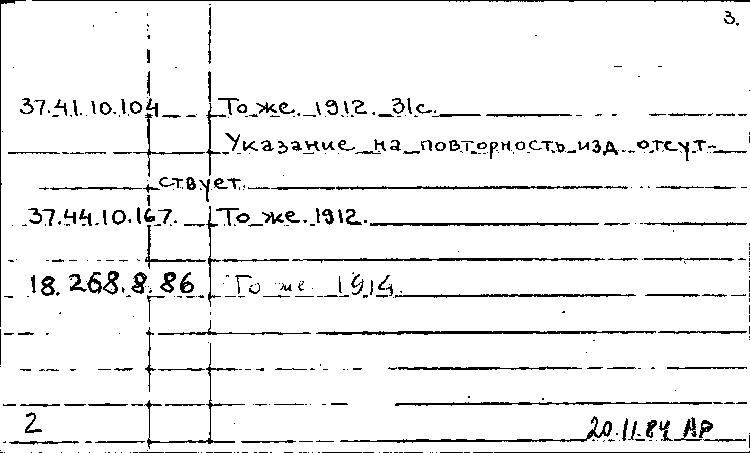 3.
37.41.10.104 То же. 1912. 31с.
Указание на повторность изд. отсут-
ствует.
37.44.10.167. То же. 1912.
18.268.8.86 То же 1914.
2 20.11.84 АР